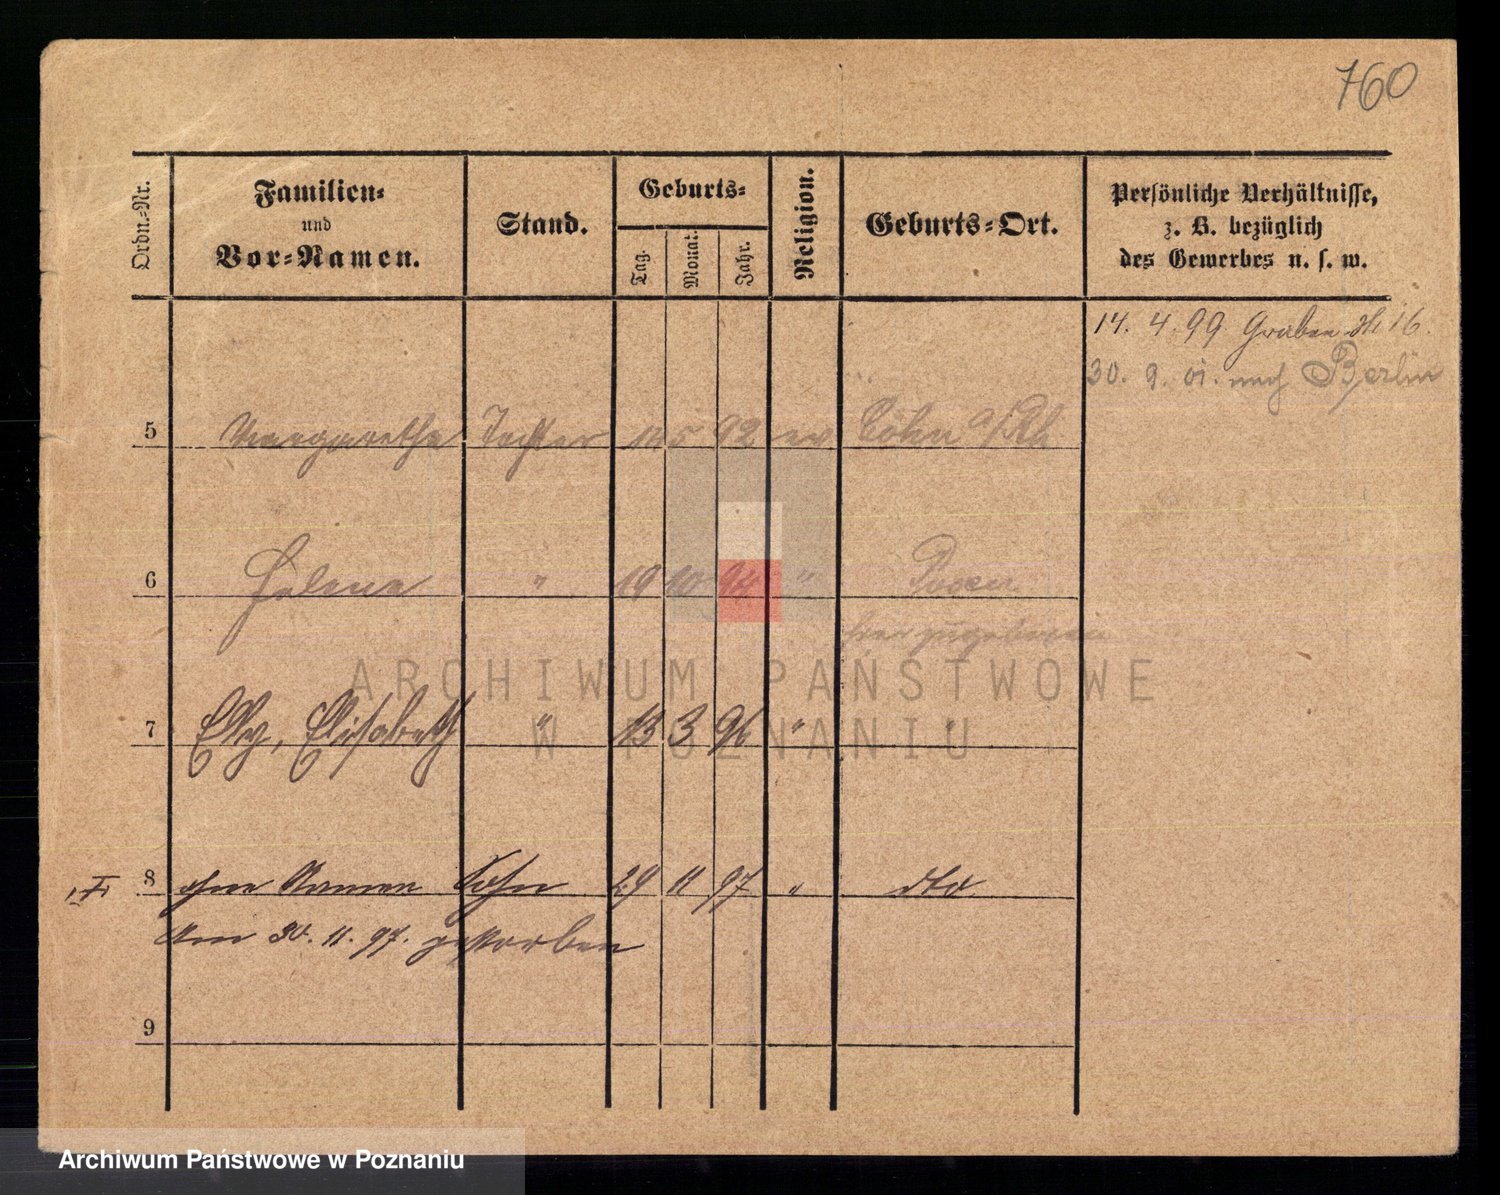 760
Ordn.-Nr.
Familien-
und
Vor-Namen.
Stand.
Geburts-
Tag.
Monat.
Jahr.
Religion.
Geburts-Ort.
Persönliche Verhältnisse,
z. B. bezüglich
des Gewerbes u. s. w.
14. 4. 99 Graben 16.
30. 9. 01. nach Berlin
5 Margarethe Tochter 5 92 ev Cöln a/Rh
6 Helene " 19 10 94 " Posen
hier zugeboren
7 Elly, Elisabeth " 13 3 96 " "
8 ohne Namen Sohn 29 11 97 " dto
Am 30. 11. 97. gestorben
9
ARCHIWUM PAŃSTWOWE
W POZNANIU
Archiwum Państwowe w Poznaniu